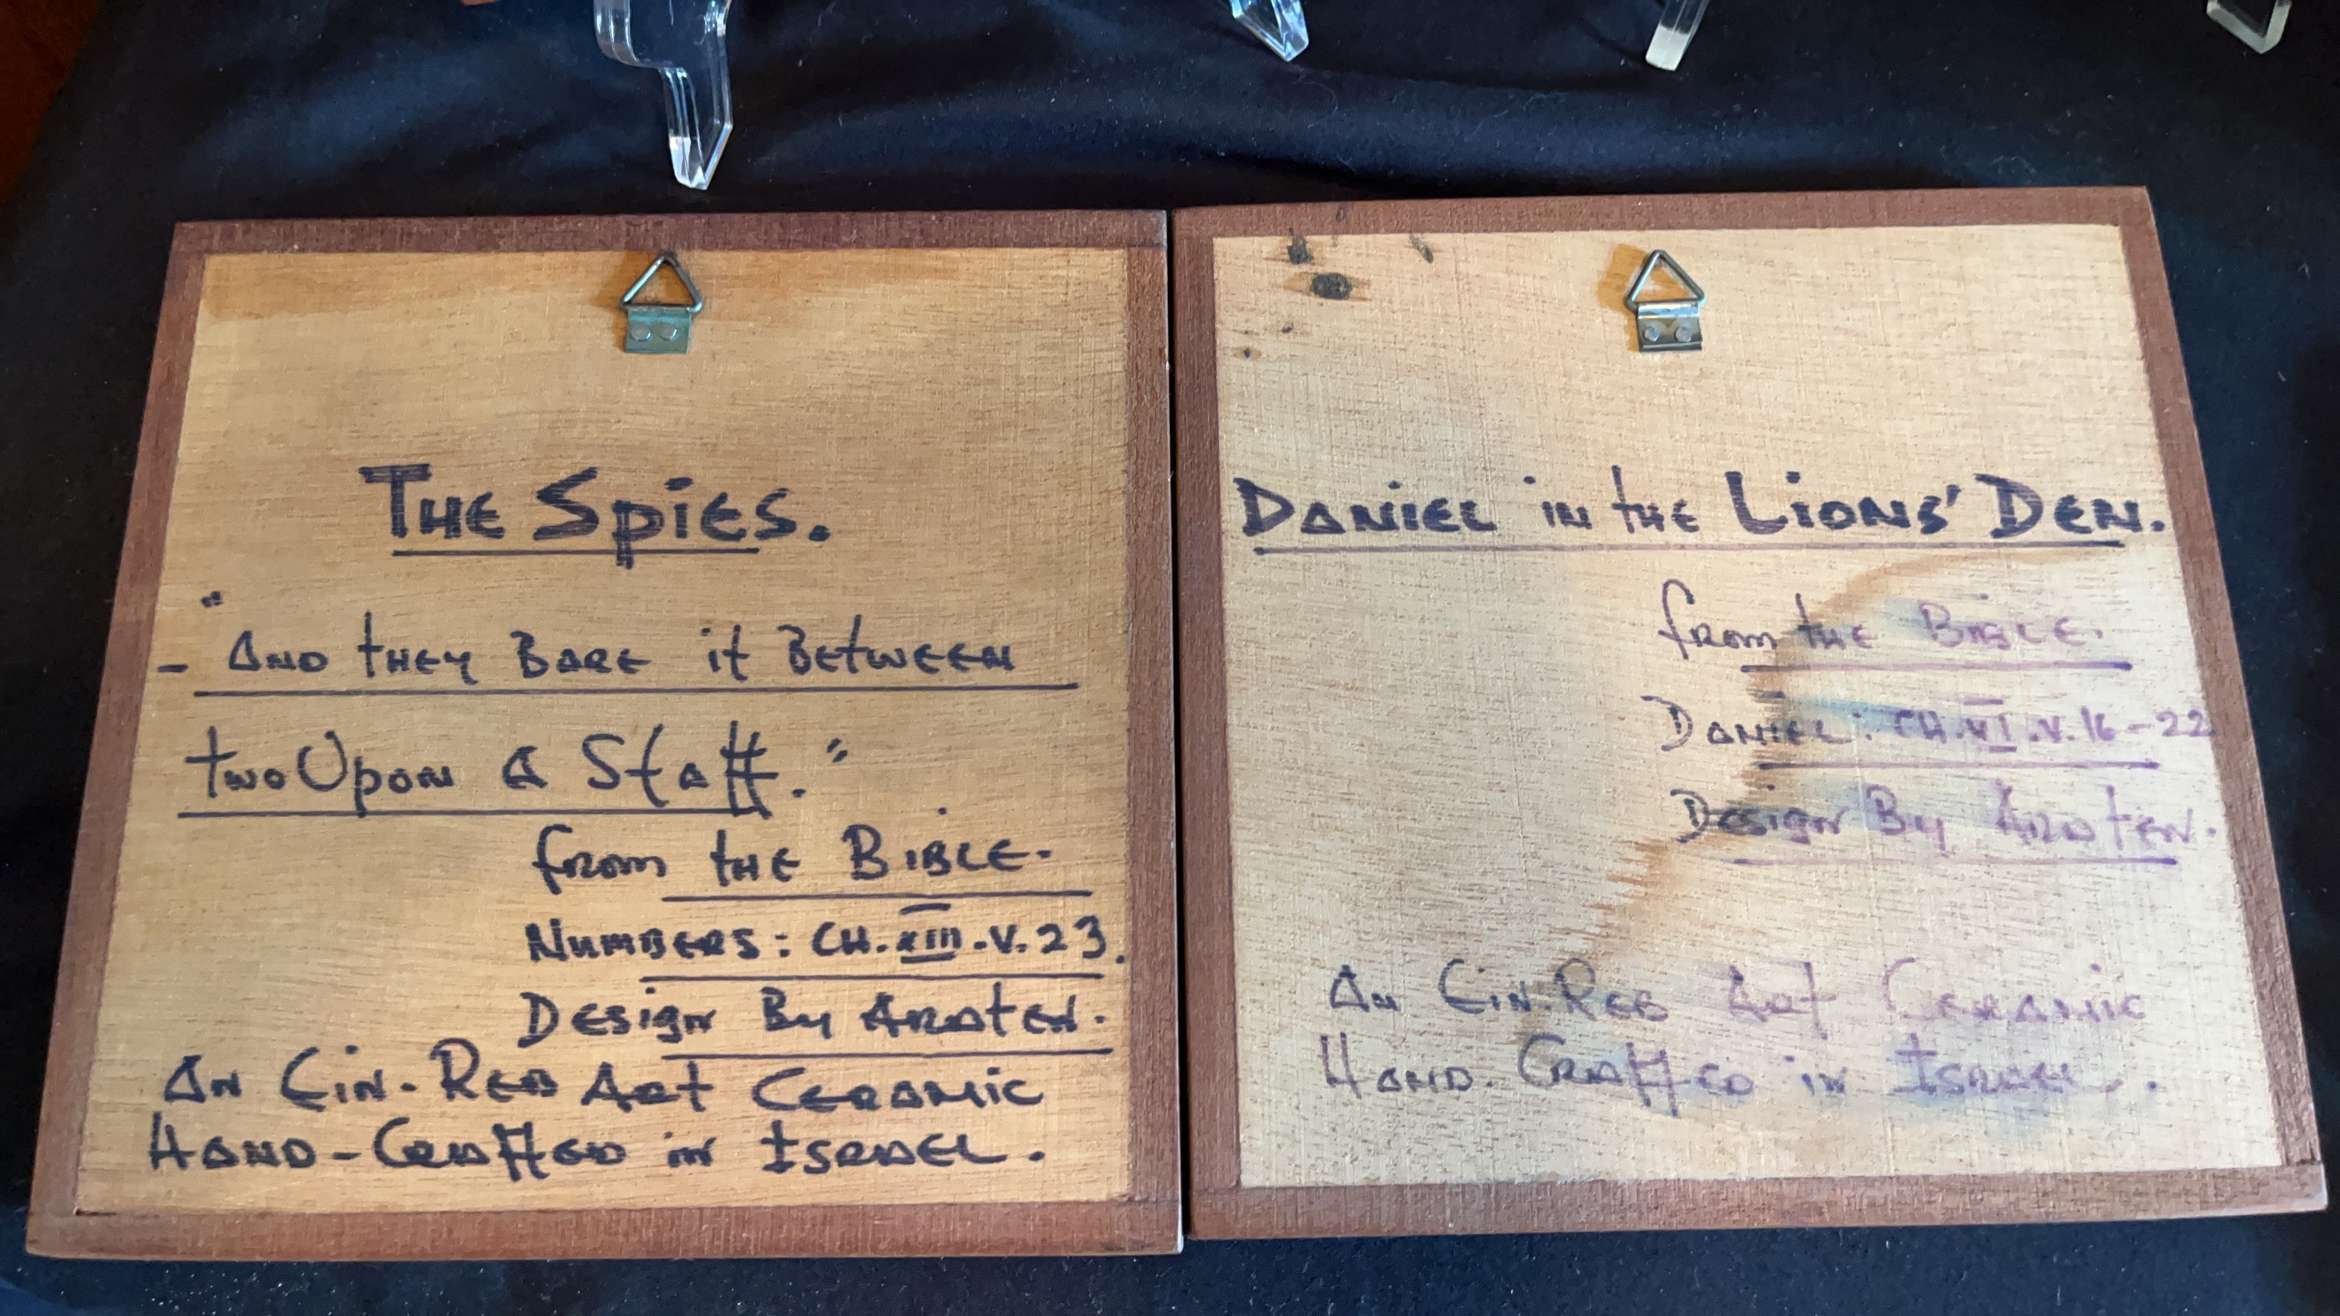 The Spies.
- "And they Bare it Between
two Upon a Staff."
from the Bible.
Numbers: CH. XIII. V. 23.
Design By Aroten.
An Ein-Reb Art Ceramic
Hand-Crafted in Israel.
Daniel in the Lions' Den.
from the Bible.
Daniel: CH. VI. V. 16-22
Design By Aroten.
An Ein-Reb Art Ceramic
Hand-Crafted in Israel.